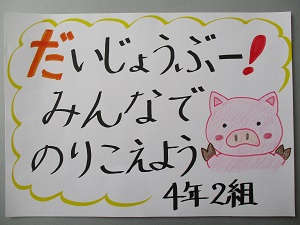 だいじょうぶー!
みんなで
のりこえよう
4年2組